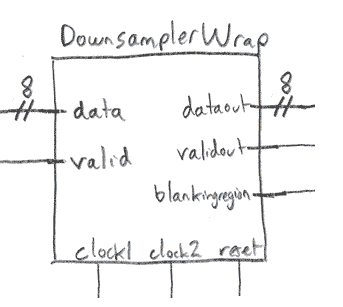 DownsamplerWrap
8
8
data
dataout
valid
validout
blankingregion
clock1 clock2 reset